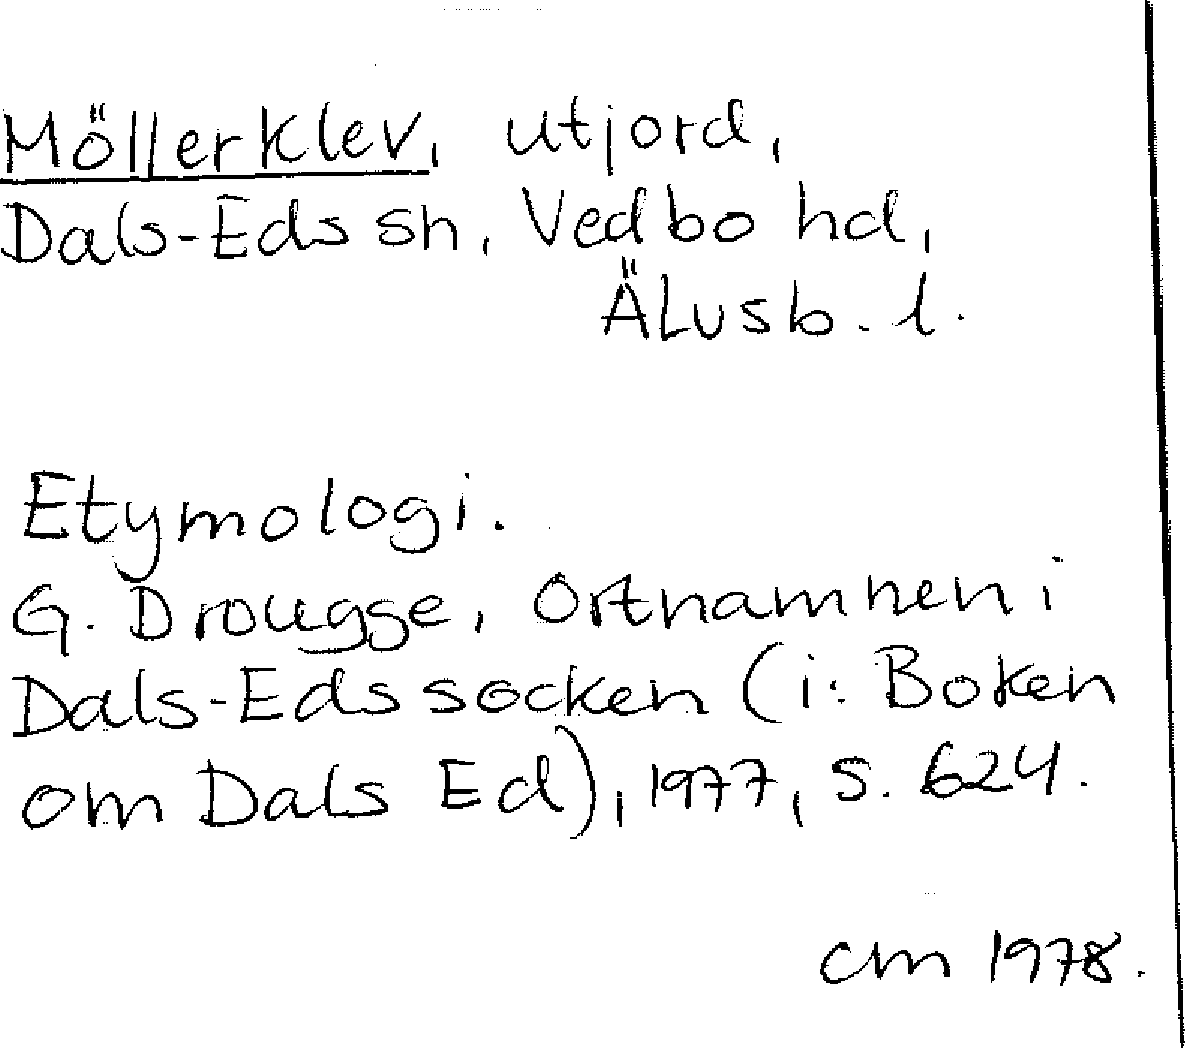 Möllerklev, utjord,
Dals-Eds sn, Vedbo hd,
Älvsb. l.
Etymologi.
G. Drougge, Ortnamnen i
Dals-Eds socken (i: Boken
om Dals Ed), 1977, s. 624.
cm 1978.